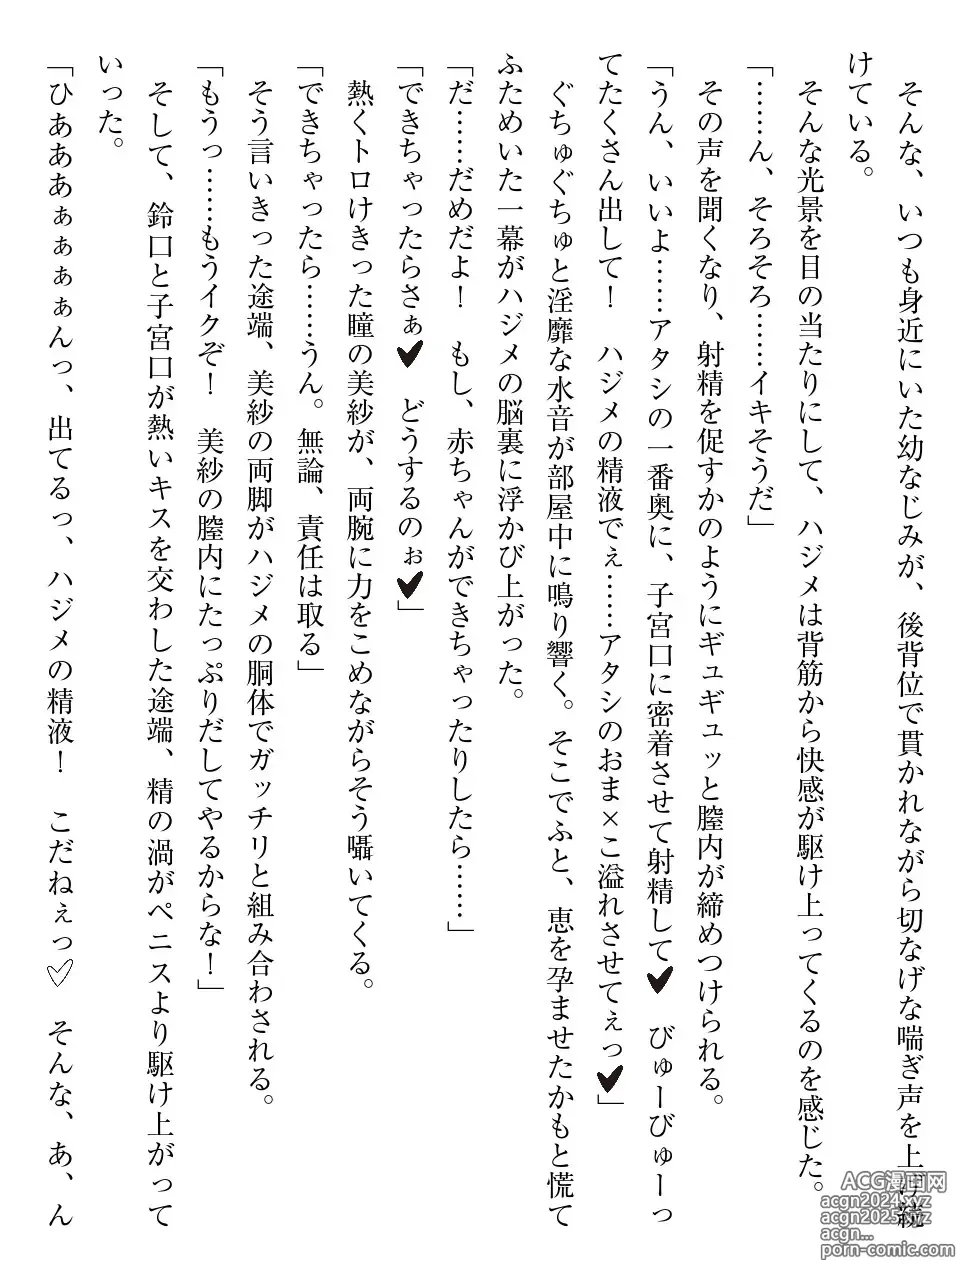 そんな、いつも身近にいた幼なじみが、後背位で貫かれながら切なげな喘ぎ声を上げ続
けている。
そんな光景を目の当たりにして、ハジメは背筋から快感が駆け上ってくるのを感じた。
「……ん、そろそろ……イキそうだ」
その声を聞くなり、射精を促すかのようにギュギュッと膣内が締めつけられる。
「うん、いいよ……アタシの一番奥に、子宮口に密着させて射精して♥　びゅーびゅーっ
てたくさん出して！　ハジメの精液でぇ……アタシのおま×こ溢れさせてぇっ♥」
ぐちゅぐちゅと淫靡な水音が部屋中に鳴り響く。そこでふと、恵を孕ませたかもと慌て
ふためいた一幕がハジメの脳裏に浮かび上がった。
「だ……だめだよ！　もし、赤ちゃんができちゃったりしたら……」
「できちゃったらさぁ♥　どうするのぉ♥」
熱くトロけきった瞳の美紗が、両腕に力をこめながらそう囁いてくる。
「できちゃったら……うん。無論、責任は取る」
そう言いきった途端、美紗の両脚がハジメの胴体でガッチリと組み合わされる。
「もうっ……もうイクぞ！　美紗の膣内にたっぷりだしてやるからな！」
そして、鈴口と子宮口が熱いキスを交わした途端、精の渦がペニスより駆け上がって
いった。
「ひあああぁぁぁぁんっ、出てるっ、ハジメの精液！　こだねぇっ♡　そんな、あ、ん
ACG漫画网
acgn2024.xyz
acgn2025.xyz
acgn...
porn-comic.com